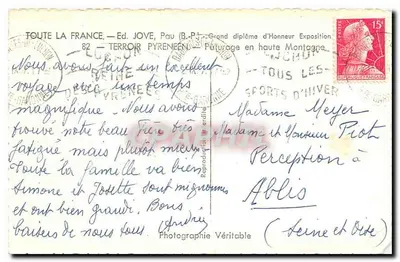 TOUTE LA FRANCE. — Ed. JOVE, Pau (B.-P.) Grand diplôme d'Honneur Exposition
82 - TERROIR PYRENEEN - Pâturage en haute Montagne
LUCHON
REINE
PYRENEES
LUCHON
TOUS LES
SPORTS D'HIVER
15F
Nous avons fait un excellent
voyage avec un temps
magnifique. Nous avons
trouvé notre beau frère très
fatigué mais plutôt mieux.
Toute la famille va bien
Simone et Josette sont mignonnes
et ont bien grandi. Bons
baisers de nous tous.
Madame Meyer
Madame et Monsieur Piot
Perception
à
Ablis
(Seine et Oise)
Reproduction interdite
Photographie Véritable